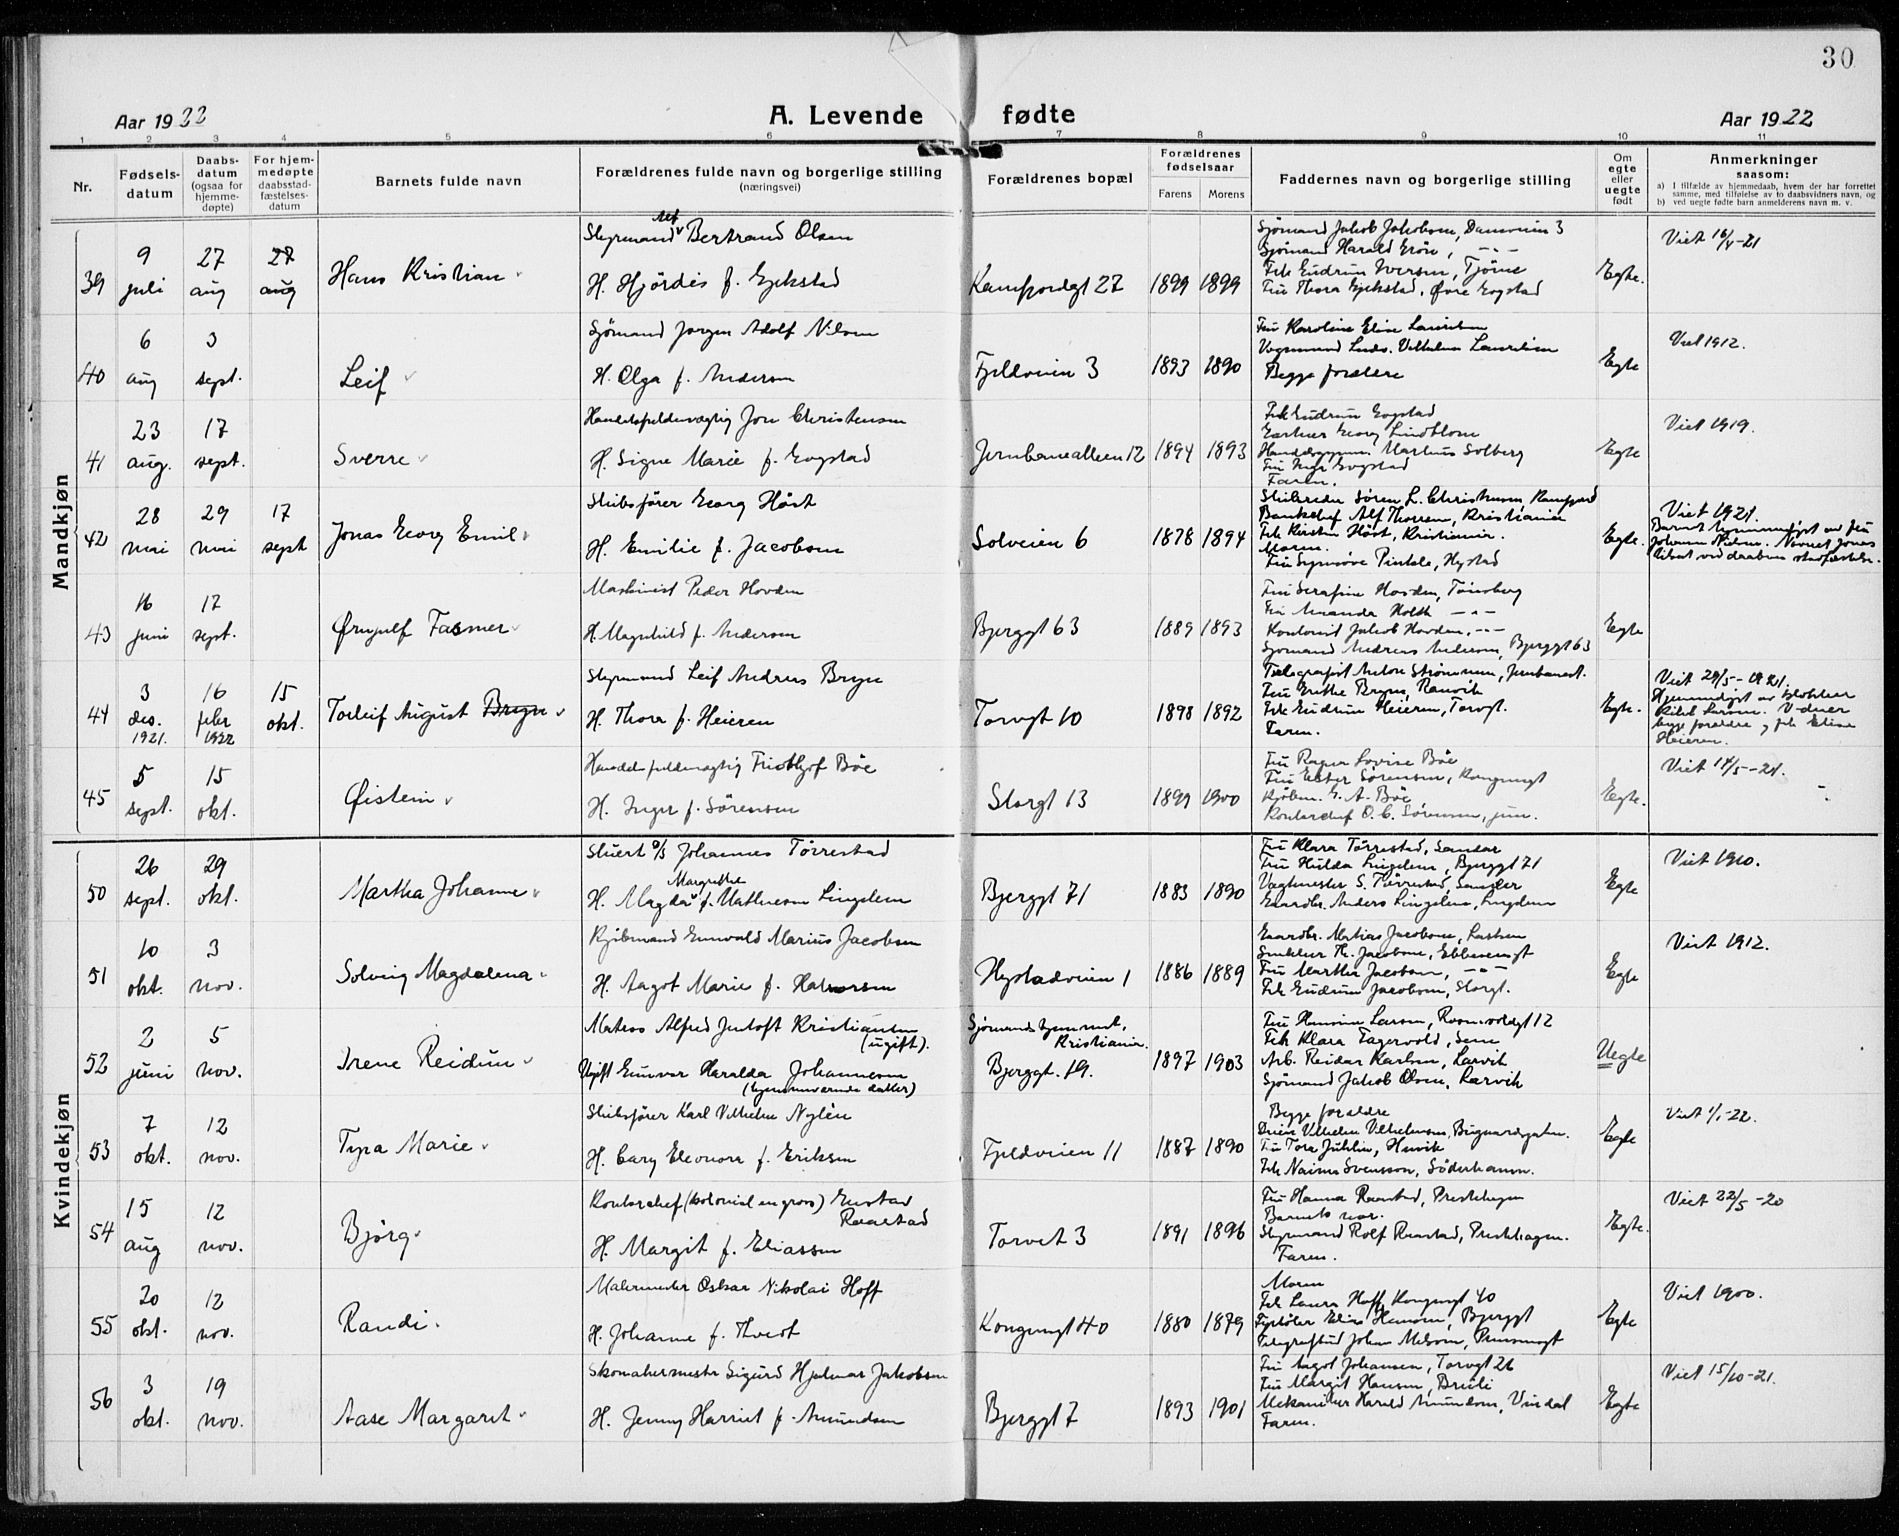 30
Aar 1922
A. Levende fødte
Aar 1922
1 2 3 4 5 6 7 8 9 10 11
Nr.
Fødsels-
datum
Daabs-
datum
(ogsaa for
hjemme-
døpte)
For hjem-
medøpte
daabsstad-
fæstelses-
datum
Barnets fulde navn
Forældrenes fulde navn og borgerlige stilling
(næringsvei)
Forældrenes bopæl
Forældrenes
fødselsaar
Farens Morens
Faddernes navn og borgerlige stilling
Om
egte
eller
uegte
født
Anmerkninger
saasom:
a) I tilfælde av hjemmedaab, hvem der har forrettet
samme, med tilføielse av to daabsvidners navn, og
b) ved uegte fødte barn anmelderens navn m. v.
Mandkjøn
39
9
juli
27
aug
27
aug
Hans Kristian
Styrmand Alf Bertrand Olsen
H. Hjördis f. Gjekstad
Kamfjordgt 27
1899 1899
Sjömand Jakob Jakobsen, Damveien 3
Sjömand Harald Grön, -"-
Frk Gudrun Iversen, Tjöme
Fru Thora Gjekstad, Övre Gogstad
Egte.
Viet 16/4-21
40
6
aug
3
sept.
Leif
Sjömand Jörgen Adolf Nilsen
H. Olga f. Andersen
Fjeldveien 3
1893 1890
Fru Karoline Elise Lauritsen
Vognmand Ludv. Vilhelm Lauritsen
Begge forældre
Egte
Viet 1912.
41
23
aug.
17
sept.
Sverre
Handelsfuldmægtig Jon Christensen
H. Signe Marie f. Gogstad
Jernbanealleen 12
1894 1893
Frk Gudrun Gogstad
Gartner Georg Lindblom
Markus Solberg
Fru Inga Gogstad
Faren.
Egte
Viet 1919.
42
28
mai
29
mai
17
sept
Jonas Georg Emil
Skibsförer Georg Höst
H. Emilie f. Jacobsen
Solveien 6
1878 1894
Skibsreder Sören L. Christensen, Kamfjord
Bankchef Alf Thorsen, Kristiania
Frk Kirsten Höst, Kristiania.
Moren.
Fru Synnöve Pintsle, Hystad
Egte.
Viet 1921.
Barnet hjemmedöpt av fru
Johanne Nilsen. Navnet Jonas
tilsat ved daabens stadfæstelse.
43
16
juni
17
sept.
Ørnulf Fasmer
Maskinist Peder Hovden
H. Magnhild f. Andersen
Bjerggt 63
1889 1893
Fru Serafine Hovden, Tönsberg
Fru Amanda Holth -"-
Kontorist Jakob Hovden, -"-
Sjömand Andreas Andersen, Bjerggt 63
Egte
44
3
des.
1921.
16
febr
1922
15
okt.
Torleif August Bryn
Styrmand Leif Andreas Bryn
H. Thora f. Heieren
Torvgt 10
1898 1892
Telegrafist Anton Strömmen, Jernbanest.
Fru Grethe Bryn, Ranvik
Frk Gudrun Heieren, Torvgt.
Faren.
Egte.
Viet 28/5-1921.
Hjemmedöpt av klokker
Larsen. Vidner
begge forældre og frk Elise
Heieren.
45
5
sept.
15
okt.
Øistein
Handelsfuldmægtig Fridthjof Böe
H. Inger f. Sörensen
Storgt 13
1899 1900
Fru Ragna Lovise Böe
Fru Ester Sörensen, Kongensgt
Kjöbm. G. A. Böe
Kontorchef O. C. Sörensen, jun.
Egte.
Viet 14/5-21.
Kvindekjøn
50
26
sept.
29
okt.
Martha Johanne
Stuert o/s Johannes Törrestad
H. Magda Margrethe f. Mathiesen Lingelem
Bjerggt 71
1883 1890
Fru Klara Törrestad, Sandar
Fru Hulda Lingelem, Bjerggt 71
Vagtmester S. Törrestad, Sandar
Gaardbr. Anders Lingelem, Lingelem
Egte
Viet 1910.
51
10
okt.
3
nov.
Solveig Magdalena
Kjöbmand Gunvald Marius Jacobsen
H. Aagot Marie f. Halvorsen
Hystadveien 1
1886 1889
Gaardbr. Matias Jacobsen, Lasken
Snekker H. Jacobsen, Ebbesensgt
Fru Marthe Jacobsen, -"-
Frk Gudrun Jacobsen, Storgt.
Egte
Viet 1912.
52
2
juni
5
nov.
Irene Reidun
Matros Alfred Jentoft Kristiansen
(ugift).
Ugift Gunvor Haralda Johannesen
(hjemmeværende datter)
Sjömandshjemmet,
Kristiania.
Bjerggt. 19.
1897 1903
Fru Hansine Larsen, Rosenvoldgt 12
Frk Klara Fagervold, Sem
Arb. Reidar Karlsen, Larvik
Sjömand Jakob Olsen, Larvik
Uegte
53
7
okt.
12
nov.
Tyra Marie
Skibsförer Karl Vilhelm Nylén
H. Cary Eleonora f. Eriksen
Fjeldveien 11
1887 1890
Begge forældre
Vilhelm Vilhelmsen, Bugaardsgaten.
Fru Tora Juhlin, Husvik
Frk Naima Svensson, Söderhamn.
Egte
Viet 1/1-22.
54
15
aug
12
nov.
Bjørg
Kontorchef (kolonial en gros) Gustav
Raastad
H. Margit f. Eliassen
Torvet 3
1891 1896
Fru Hanna Raastad, Presthagen
Barnets mor.
Styrmand Rolf Raastad, Presthagen.
Faren.
Egte.
Viet 22/5-20
55
20
okt.
12
nov.
Randi
Malermester Oskar Nikolai Hoff
H. Johanne f. Thvedt
Kongensgt 40
1880 1879
Moren
Frk Laura Hoff, Kongensgt 40
Elise Hansen, Bjerggt
Johan Melsom, Prinsensgt
Egte
Viet 1900.
56
3
okt.
19
nov.
Aase Margaret
Skomakermester Sigurd Hjalmar Jakobsen
H. Jenny Harriet f. Amundsen
Bjerggt 7
1893 1901
Fru Aagot Johansen, Torvgt 26
Fru Margit Hansen, Breili
Mekaniker Harald Amundsen, Vindal
Faren.
Egte
Viet 15/10-21.